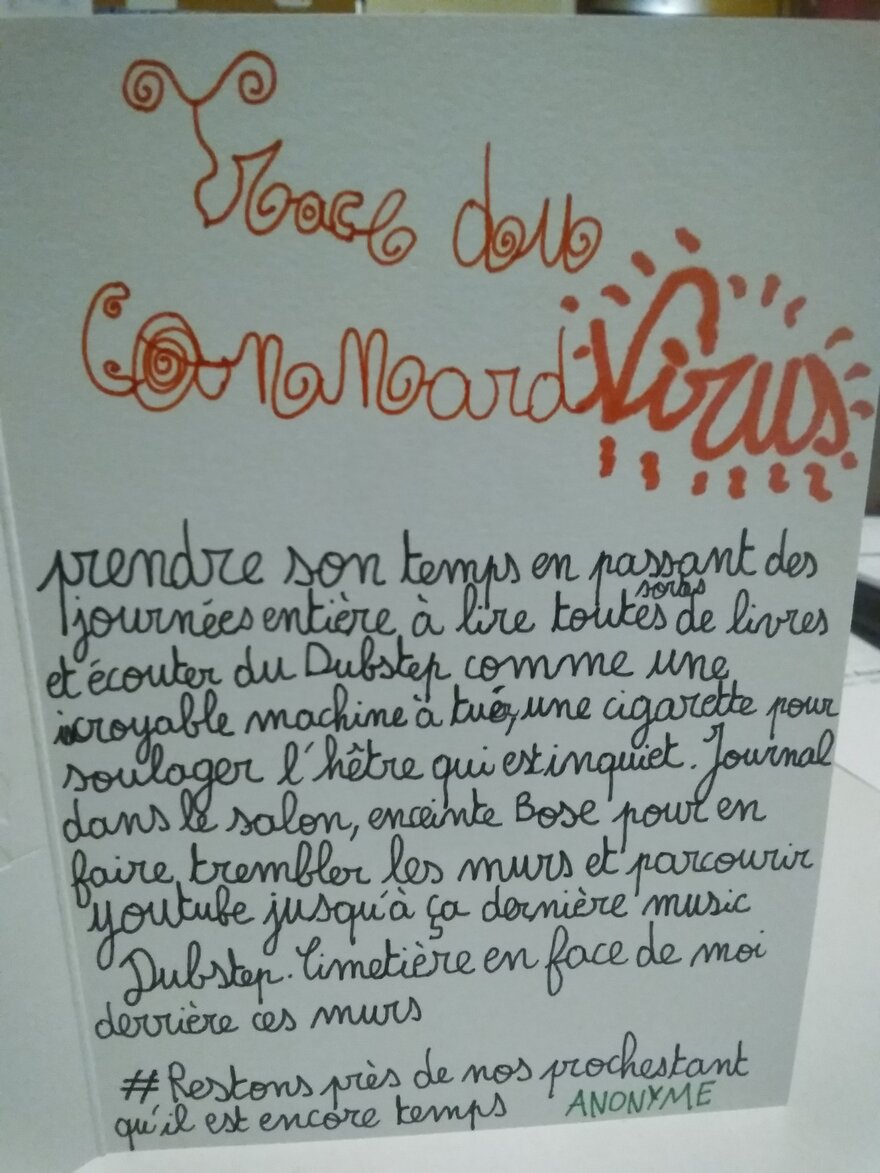 Trace du
ConnardVirus
prendre son temps en passant des
journées entière à lire toutes sortes de livres
et écouter du Dubstep comme une
icroyable machine à tué, une cigarette pour
soulager l'hêtre qui est inquiet. Journal
dans le salon, enceinte Bose pour en
faire trembler les murs et parcourir
youtube jusqu'à ça dernière music
Dubstep. Cimetière en face de moi
derrière ces murs
#Restons près de nos prochestant
qu'il est encore temps ANONYME